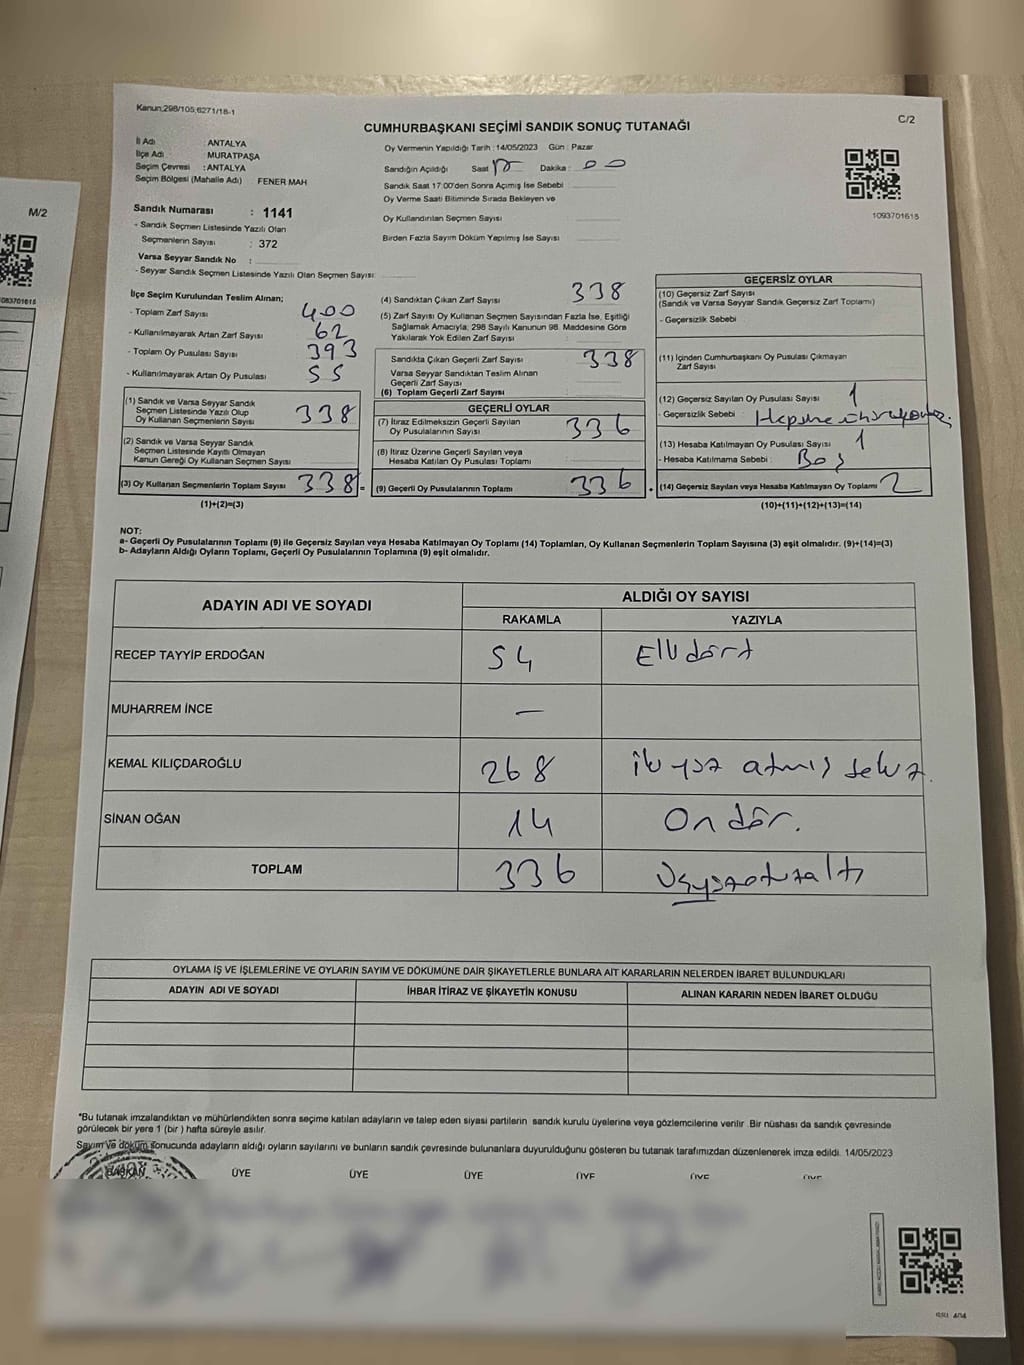 Kanun;298/105;6271/18-1
C/2
CUMHURBAŞKANI SEÇİMİ SANDIK SONUÇ TUTANAĞI
İl Adı : ANTALYA
İlçe Adı : MURATPAŞA
Seçim Çevresi : ANTALYA
Seçim Bölgesi (Mahalle Adı) FENER MAH
Oy Vermenin Yapıldığı Tarih : 14/05/2023 Gün : Pazar
Sandığın Açıldığı Saat Dakika : 00
Sandık Saat 17:00'den Sonra Açımış İse Sebebi
Oy Verme Saati Bitiminde Sırada Bekleyen ve
Oy Kullandırılan Seçmen Sayısı
Birden Fazla Sayım Döküm Yapılmış İse Sayısı
1093701615
M/2
Sandık Numarası : 1141
- Sandık Seçmen Listesinde Yazılı Olan
Seçmenlerin Sayısı : 372
Varsa Seyyar Sandık No :
- Seyyar Sandık Seçmen Listesinde Yazılı Olan Seçmen Sayısı:
İlçe Seçim Kurulundan Teslim Alınan;
- Toplam Zarf Sayısı 400
- Kullanılmayarak Artan Zarf Sayısı 62
- Toplam Oy Pusulası Sayısı 393
- Kullanılmayarak Artan Oy Pusulası 55
(1) Sandık ve Varsa Seyyar Sandık
Seçmen Listesinde Yazılı Olup
Oy Kullanan Seçmenlerin Sayısı 338
(2) Sandık ve Varsa Seyyar Sandık
Seçmen Listesinde Kayıtlı Olmayan
Kanun Gereği Oy Kullanan Seçmen Sayısı
(3) Oy Kullanan Seçmenlerin Toplam Sayısı 338 =
(1)+(2)=(3)
(4) Sandıktan Çıkan Zarf Sayısı 338
(5) Zarf Sayısı Oy Kullanan Seçmen Sayısından Fazla İse, Eşitliği
Sağlamak Amacıyla, 298 Sayılı Kanunun 98. Maddesine Göre
Yakılarak Yok Edilen Zarf Sayısı :
Sandıkta Çıkan Geçerli Zarf Sayısı 338
Varsa Seyyar Sandıktan Teslim Alınan
Geçerli Zarf Sayısı
(6) Toplam Geçerli Zarf Sayısı :
GEÇERLİ OYLAR
(7) İtiraz Edilmeksizin Geçerli Sayılan
Oy Pusulalarının Sayısı 336
(8) İtiraz Üzerine Geçerli Sayılan veya
Hesaba Katılan Oy Pusulası Toplamı
(9) Geçerli Oy Pusulalarının Toplamı 336
GEÇERSİZ OYLAR
(10) Geçersiz Zarf Sayısı
(Sandık ve Varsa Seyyar Sandık Geçersiz Zarf Toplamı)
- Geçersizlik Sebebi
(11) İçinden Cumhurbaşkanı Oy Pusulası Çıkmayan
Zarf Sayısı
(12) Geçersiz Sayılan Oy Pusulası Sayısı 1
- Geçersizlik Sebebi :
(13) Hesaba Katılmayan Oy Pusulası Sayısı 1
- Hesaba Katılmama Sebebi : Boş
(14) Geçersiz Sayılan veya Hesaba Katılmayan Oy Toplamı 2
(10)+(11)+(12)+(13)=(14)
NOT:
a- Geçerli Oy Pusulalarının Toplamı (9) ile Geçersiz Sayılan veya Hesaba Katılmayan Oy Toplamı (14) Toplamları, Oy Kullanan Seçmenlerin Toplam Sayısına (3) eşit olmalıdır. (9)+(14)=(3)
b- Adayların Aldığı Oyların Toplamı, Geçerli Oy Pusulalarının Toplamına (9) eşit olmalıdır.
ADAYIN ADI VE SOYADI ALDIĞI OY SAYISI
RAKAMLA YAZIYLA
RECEP TAYYİP ERDOĞAN 54 Ellidört
MUHARREM İNCE —
KEMAL KILIÇDAROĞLU 268 ikiyüz atmış sekiz.
SİNAN OĞAN 14 On dör.
TOPLAM 336 Üçyüzotuzaltı
OYLAMA İŞ VE İŞLEMLERİNE VE OYLARIN SAYIM VE DÖKÜMÜNE DAİR ŞİKAYETLERLE BUNLARA AİT KARARLARIN NELERDEN İBARET BULUNDUKLARI
ADAYIN ADI VE SOYADI İHBAR İTİRAZ VE ŞİKAYETİN KONUSU ALINAN KARARIN NEDEN İBARET OLDUĞU
*Bu tutanak imzalandıktan ve mühürlendikten sonra seçime katılan adayların ve talep eden siyasi partilerin sandık kurulu üyelerine veya gözlemcilerine verilir. Bir nüshası da sandık çevresinde
görülecek bir yere 1 (bir ) hafta süreyle asılır.
Sayım ve döküm sonucunda adayların aldığı oyların sayılarını ve bunların sandık çevresinde bulunanlara duyurulduğunu gösteren bu tutanak tarafımızdan düzenlenerek imza edildi. 14/05/2023
BAŞKAN ÜYE ÜYE ÜYE ÜYE ÜYE ÜYE